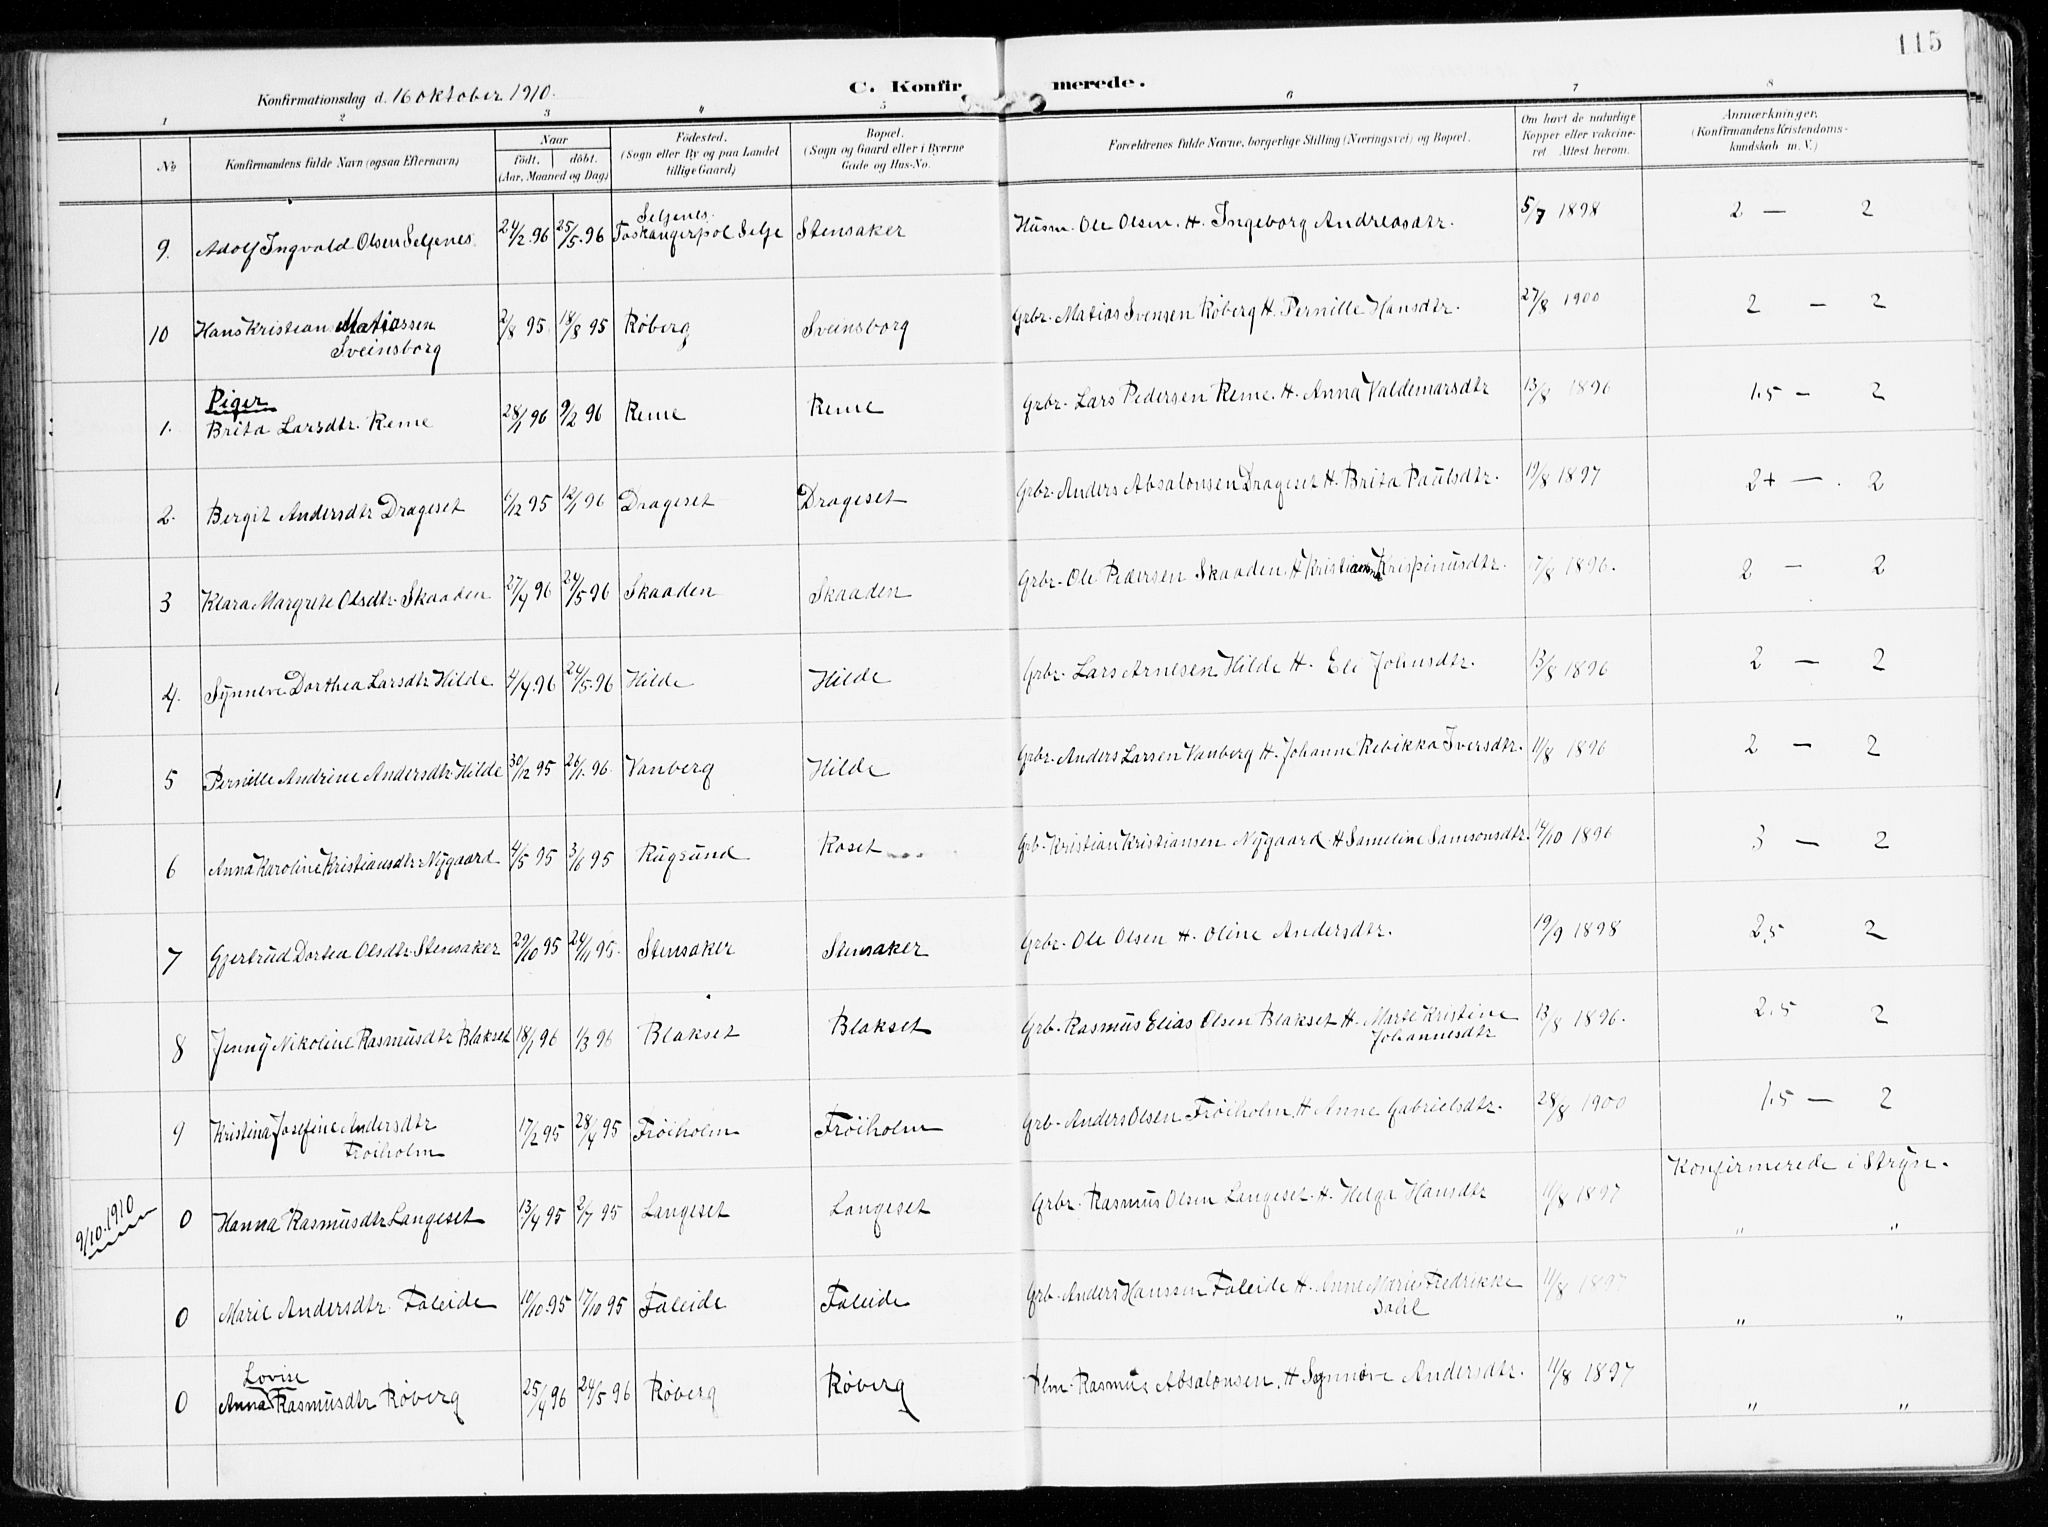 115
C. Konfirmerede.
Konfirmationsdag d. 16 oktober 1910.
1 2 3 4 5 6 7 8
No
Konfirmandens fulde Navn (ogsaa Efternavn)
Naar
født. døbt.
(Aar, Maaned og Dag)
Fødested.
(Sogn eller By og paa Landet
tillige Gaard)
Bopæl.
(Sogn og Gaard eller i Byerne
Gade og Hus-No.
Forældrenes fulde Navne, borgerlige Stilling (Næringsvei) og Bopæl.
Om havt de naturlige
Kopper eller vakcine-
ret. Attest herom.
Anmærkninger.
(Konfirmandens Kristendoms-
kundskab m. V.)
Seljenes
9. Adolf Ingvald Olsen Seljenes 24/2.96 25/5.96 Selje Stensaker Husm. Ole Olsen. H. Ingeborg Andreasdtr. 5/7 1898 2 — 2
10 Hans Kristian Matiassen 2/8 95 18/8 95 Røberg Sveinsborg Grbr. Matias Svensen Røberg H. Pernille Hansdtr. 27/8 1900 2 — 2
Sveinsborg
Piger
1. Brita Larsdtr. Reme 28/1 96 9/2 96 Reme Reme Grbr. Lars Pedersen Reme. H. Anna Valdemarsdtr 13/8 1896 1.5 — 2
2. Bergit Andersdtr Drageset 1/12 95 12/1 96 Drageset Drageset Grbr. Anders Absalonsen Drageset H. Brita Paulsdtr. 19/8 1897 2+ — . 2
3 Klara Margrete Olsdtr. Skaaden 27/4 96 24/5 96 Skaaden Skaaden Grbr. Ole Pedersen Skaaden. H Kristianna Krispinusdtr. 17/8 1896. 2 — 2
4. Synneve Dorthea Larsdtr Hilde 4/4.96 24/5.96 Hilde Hilde Grbr. Lars Arnesen Hilde H. Eli Johnsdtr. 13/8 1896 2 — 2
5 Pernille Andrine Andersdtr. Hilde 30/12 95 26/1.96. Vanberg Hilde Grbr. Anders Larsen Vanberg H. Johanne Rebikka Iversdtr. 11/8 1896 2 — 2
6 Anna Karoline Kristiansdtr Nygaard 4/5 95 3/6 95 Rugsund Roset Grb. Kristian Kristiansen Nygaard H Sameline Samsonsdtr. 14/10 1896 3 — 2
7 Gjertrud Dortea Olsdtr. Stensaker 29/10 95 24/11 95. Stensaker Stensaker Grbr. Ole Olsen H. Oline Andersdtr. 19/9 1898 2,5 2
8 Jenny Nikoline Rasmusdtr Blakset 18/1 96 1/3 96 Blakset Blakset Grb. Rasmus Elias Olsen Blakset H. Marte Kristine 13/8 1896. 2.5 2
Johannesdtr
9 Kristina Josefine Andersdtr 17/2 95 28/4 95 Frøiholm Frøiholm Grb. Anders Olsen Frøiholm H Anne Gabrielsdtr. 28/8 1900 1.5 — 2
Frøiholm
Konfirmerede i Stryn.
9/10.1910 0 Hanna Rasmusdtr Langeset 13/4 95 2/7 95 Langeset Langeset Grbr. Rasmus Olsen Langeset. H. Helga Hansdtr 11/8 1897 " "
0 Marie Andersdtr. Faleide 10/10.95 17/10 95 Faleide Faleide Grb. Anders Hanssen Faleide H. Anne Marie Fredrikke 11/8 1897 " "
Dahl
Lovise
0 Anna Rasmusdtr Røberg 25/4 96 24/5 96 Røberg Røberg Rasmus Absalonsen. H Synnøve Andersdtr. 11/8 1897 " "